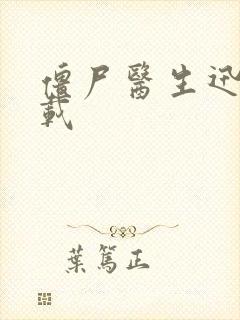 僵尸醫生迅
載
葉篤正